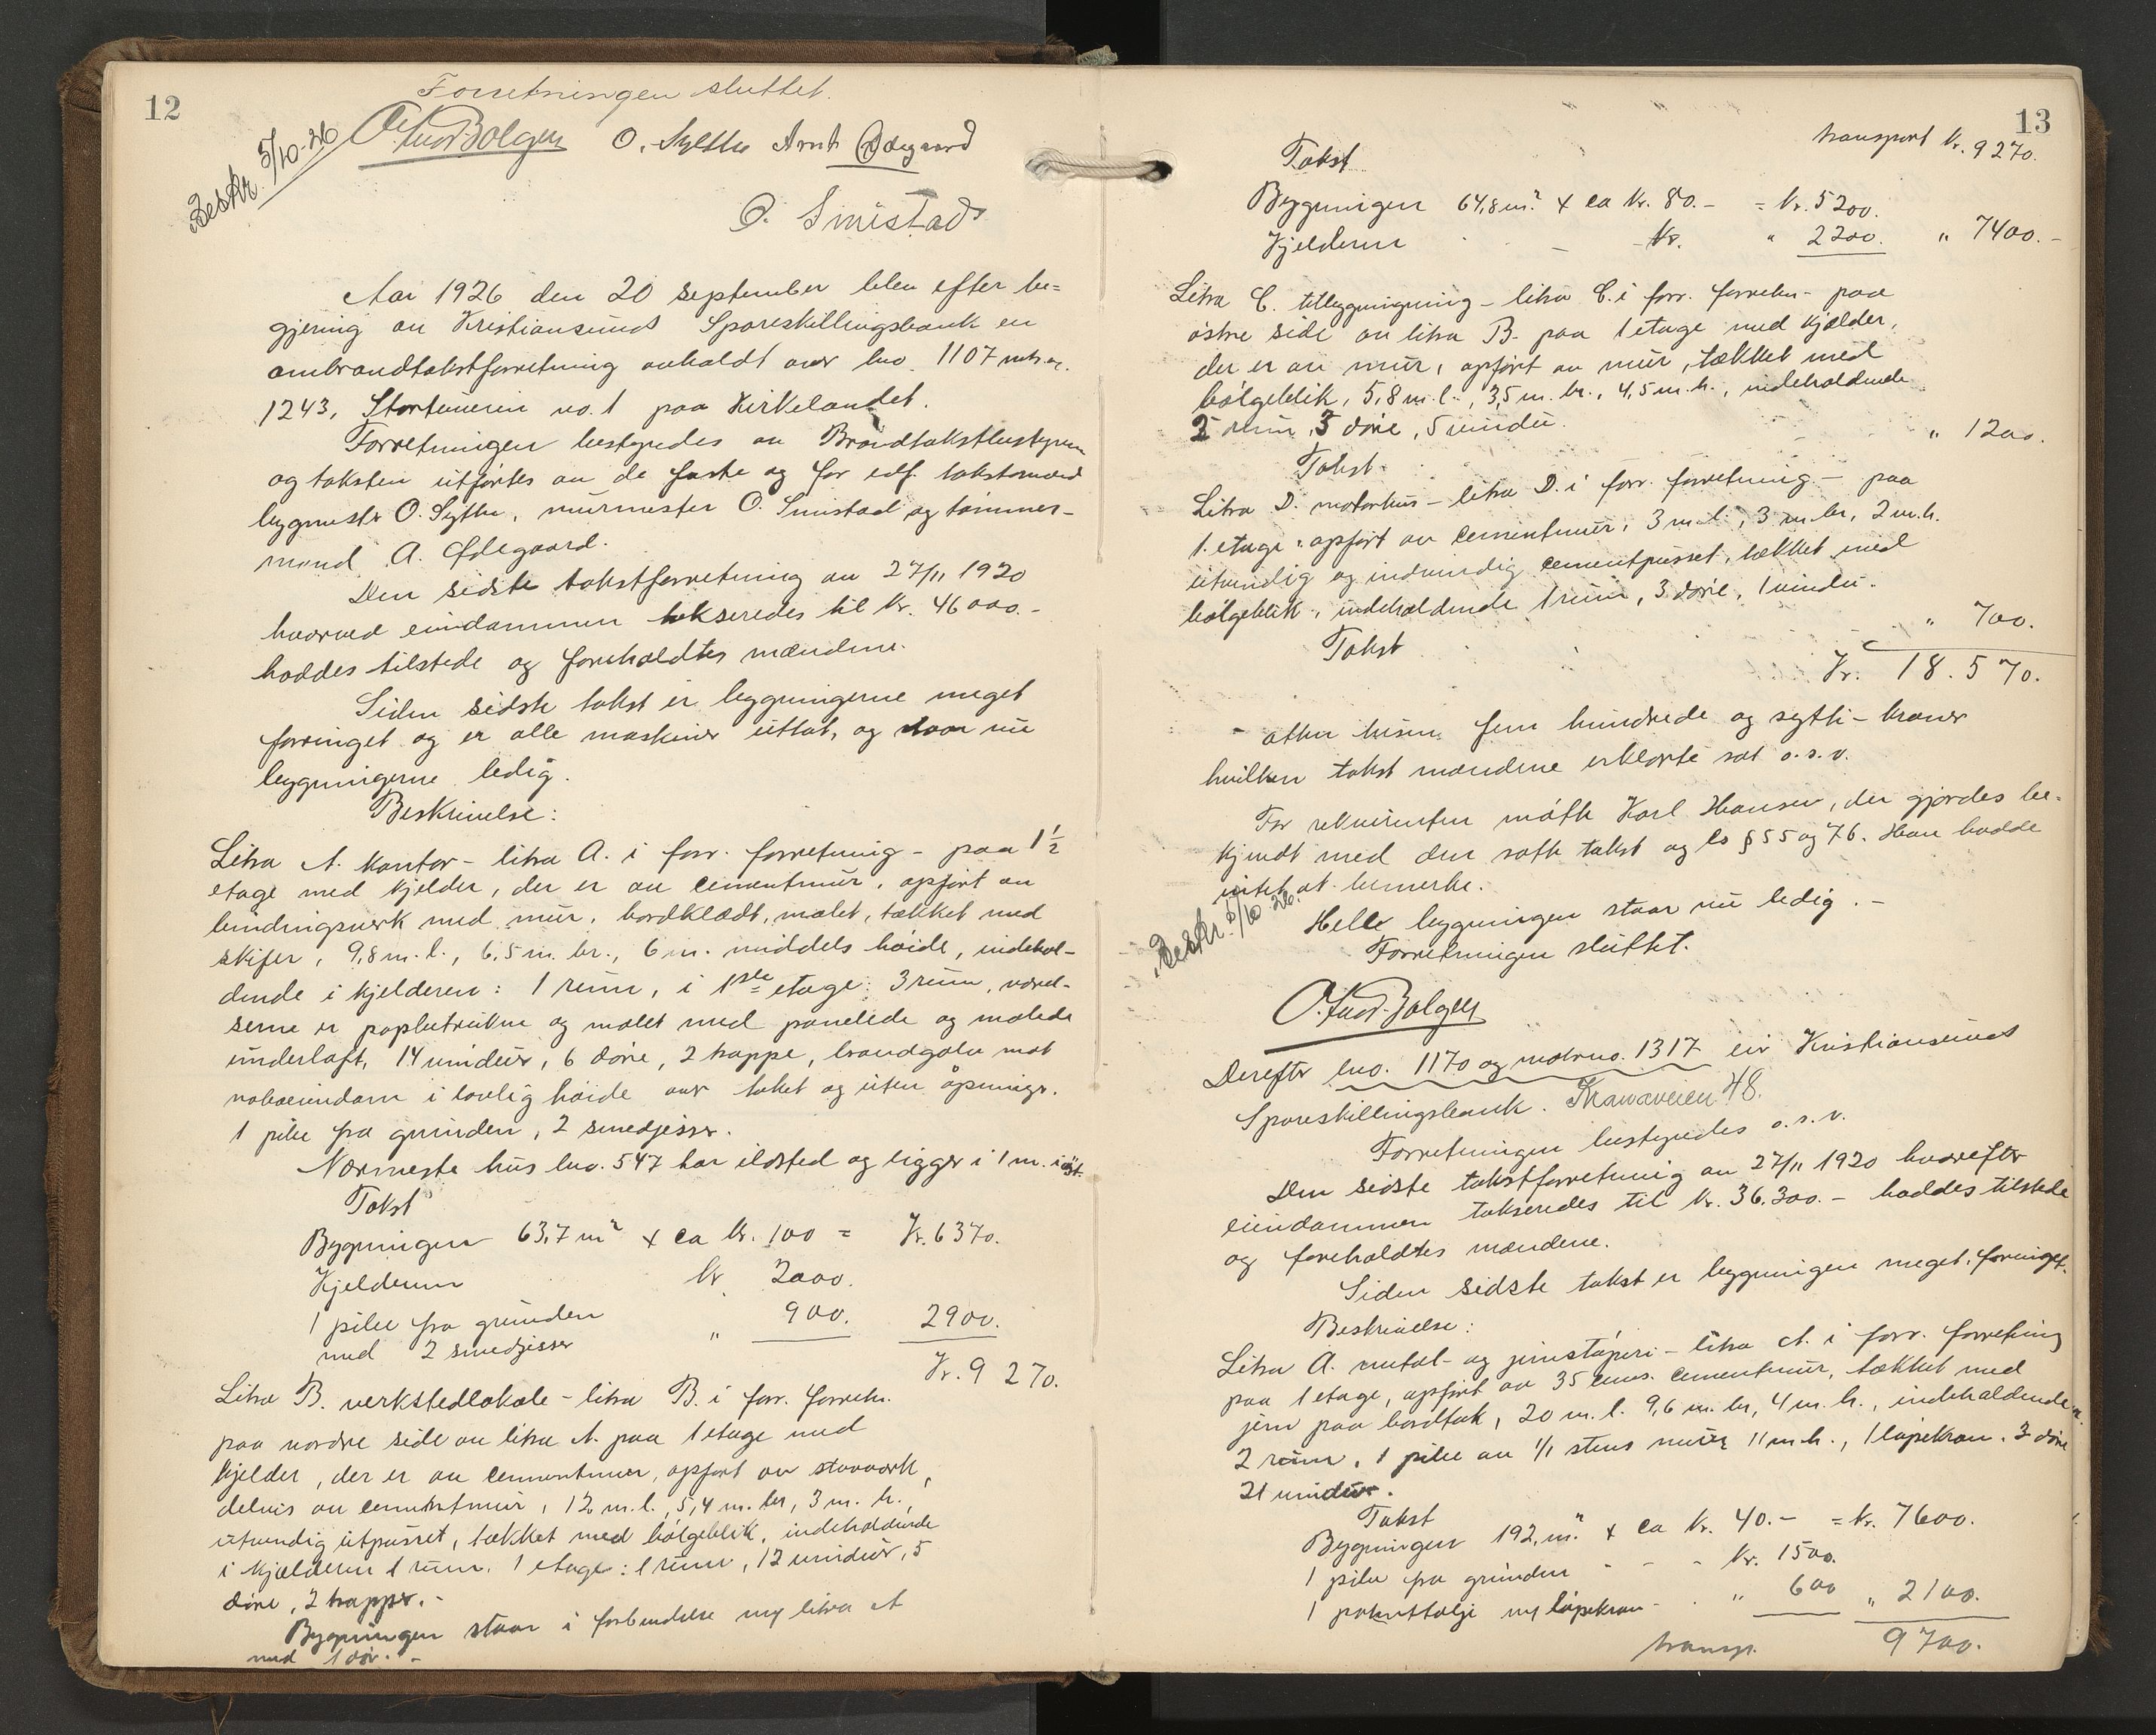 12
Forretningen sluttet.
Beskr. 5/10-26
O. Sylthe Arnt Ødegaard
O. Smistad
Aar 1926 den 20 september blev efter be=
gjering av Kristiansunds Spareskillingsbank en
ombrandtakstforretning avholdt over bno. 1107 mtr.nr.
1243, Stortuveien no. 1 paa Kirkelandet.
Forretningen bestyredes av Brandtakstbestyreren
og taksten utførtes av de faste og før edf. takstmænd
bygmester O. Sylthe, murmester O. Smistad og tømmer-
mand A. Ødegaard.
Den sidste takstforretning av 27/11 1920
hvorved eiendommen takseredes til kr. 46000.-
haddes tilstede og foreholdtes mændene.
Siden sidste takst er bygningerne meget
forringet og er alle maskiner uttat, og staar nu
bygningerne ledig.
Beskrivelse:
Litra A. kontor - litra A. i forr. forretning - paa 1½
etage med kjelder, der er av cementmur, opført av
bindingsverk med mur, bordklædt, malet, tækket med
skifer, 9,8 m. l., 6,5 m. br., 6 m. middels høide, indehol-
dende i kjelderen: 1 rum, i 1ste etage: 3 rum, værel-
serne er papbetrukne og malet med panelede og malede
underloft, 14 vinduer, 6 døre, 2 trappe, brandgavl mot
naboeiendom i lovlig høide over taket og uten åpninger.
1 pibe fra grunden, 2 smedjesser.
Nærmeste hus bno. 547 har ildsted og ligger i 1 m. i øst.
Takst
Bygningen 63,7 m² x ca kr. 100 = Kr. 6370.
Kjelderen kr 2000.
1 pibe fra grunden
med 2 smedjesser " 900. 2900.
Kr. 9 270.
Litra B. verkstedlokale - litra B. i forr. forretn.
paa nordre side av litra A. paa 1 etage med
kjelder, der er av cementmur, opført av stavverk,
delvis av cementmur, 12 m. l., 5,4 m. br, 3 m. h.,
utvendig utpusset, tækket med bølgeblik, indeholdende
i kjælderen 1 rum. 1 etage: 1 rum, 12 vinduer, 5
døre, 2 trapper. -
Bygningen staar i forbindelse m/ litra A
med 1 dør. -
13
transport kr. 9270.
Takst
Bygningen 64,8 m² x ca kr. 80.- = kr. 5200.
Kjelderen - kr. " 2200. " 7400.-
Litra C. tilbygningning - litra C. i forr. forretn - paa
østre side av litra B. paa 1 etage med kjælder,
der er av mur, opført av mur, tækket med
bølgeblik, 5,8 m. l., 3,5 m. br., 4,5 m. h., indeholdende
2 rum, 3 døre, 5 vindu.
Takst. " 1200.
Litra D. motorhus - litra D. i forr. forretning - paa
1. etage, opført av cementmur, 3 m. l., 3 m br, 2 m. h.
utvendig og indvendig cementpusset, tækket med
bølgeblik, indeholdende 1 rum, 3 døre, 1 vindu.
Takst " 700.
Kr. 18.570.
- atten tusen fem hundrede og sytti - kroner
hvilken takst mændene erklærte sat o.s.v.
For rekvirenten møtte Karl Hansen, der gjordes be-
kjendt med den satte takst og lo § 55 og 76. Han hadde
intet at bemerke.
Beskr. 5/10 26.
Hele bygningen staar nu ledig. -
Forretningen sluttet.
Derefter bno. 1170 og matrno. 1317 eier Kristiansunds
Spareskillingsbank. Kranaveien 48.
Forretningen bestyredes o.s.v.
Den sidste takstforretning av 27/11 1920 hvorefter
eiendommen takseredes til kr. 36.300.- haddes tilstede
og foreholdtes mændene.
Siden sidste takst er bygningen meget forringet.
Beskrivelse:
Litra A. metal- og jernstøperi - litra A. i forr. forretning
paa 1 etage, opført av 35 cms. cementmur, tækket med
jern paa bordtak, 20 m. l. 9,6 m. br, 4 m. h., indeholdende
2 rum, 1 pibe av 1/1 stens mur, 11 m h., 1 løpekran. 3 døre
21 vinduer.
Takst
Bygningen 192, m² x ca kr. 40.- = kr. 7600.
1 pibe fra grunden - - - kr. 1500.
1 patenttalje m/ løpekran - " 600 " 2100.
transp. 9700.